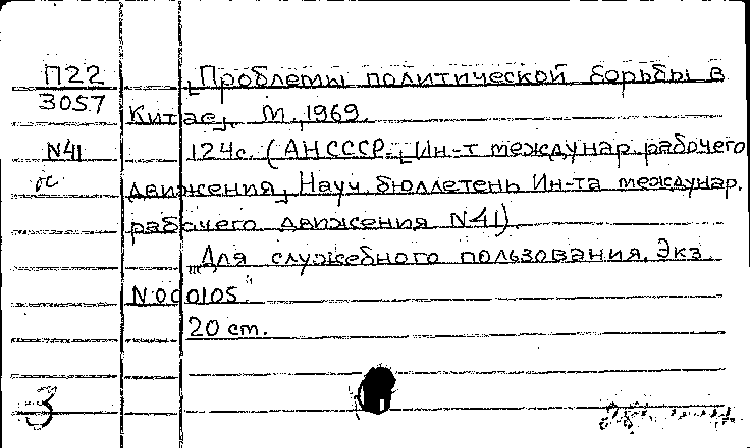 П22 Проблемы политической борьбы в
3057 Китае. М., 1969.
N41 124с. (АН СССР. Ин-т междунар. рабочего
движения, Науч. бюллетень Ин-та междунар.
рабочего движения N41).
„Для служебного пользования. Экз.
N000105."
20 ст.
3